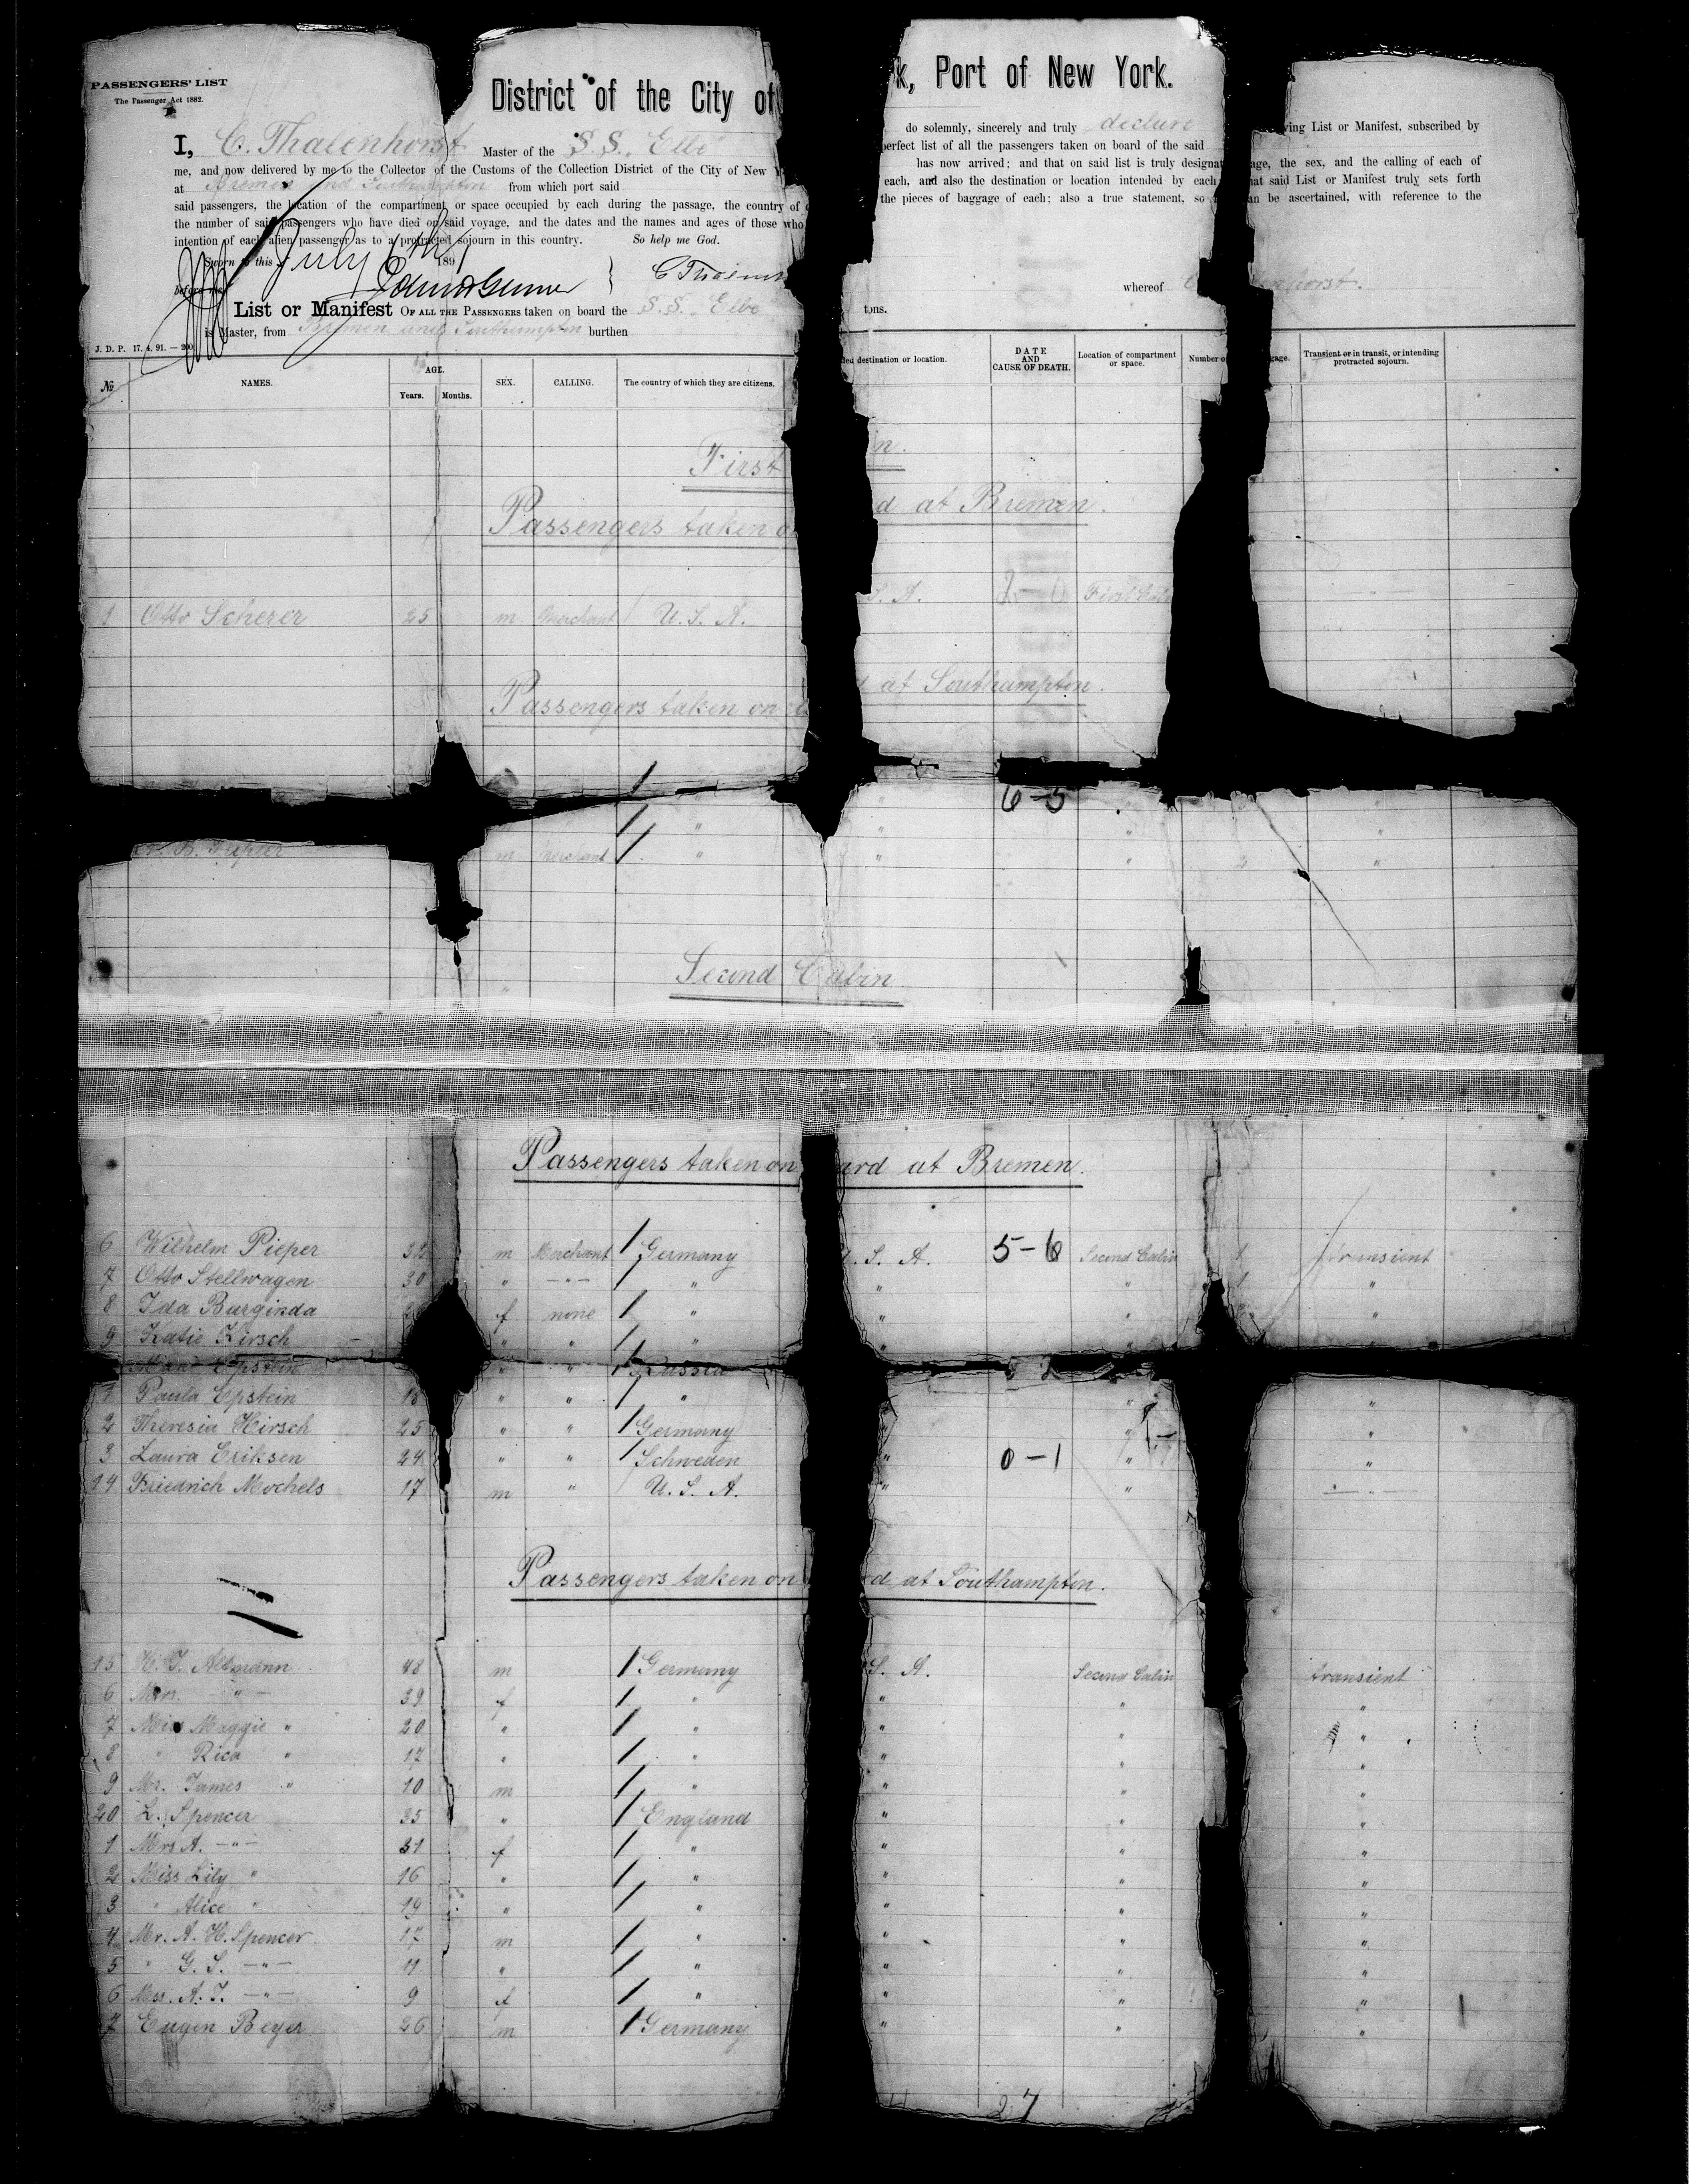 PASSENGERS' LIST
The Passenger Act 1882.
District of the City of k, Port of New York.
I, C. Thalenhorst Master of the S. S. Elbe do solemnly, sincerely and truly declare ving List or Manifest, subscribed by
me, and now delivered by me to the Collector of the Customs of the Collection District of the City of New Y perfect list of all the passengers taken on board of the said
at Bremen and Southampton from which port said has now arrived; and that on said list is truly designat age, the sex, and the calling of each of
said passengers, the location of the compartment or space occupied by each during the passage, the country of each, and also the destination or location intended by each hat said List or Manifest truly sets forth
the number of said passengers who have died on said voyage, and the dates and the names and ages of those who the pieces of baggage of each; also a true statement, so an be ascertained, with reference to the
intention of each alien passenger as to a protracted sojourn in this country. So help me God.
Sworn to this July 189
before me whereof
List or Manifest OF ALL THE PASSENGERS taken on board the S. S. Elbe
is Master, from Bremen and Southampton burthen tons.
J. D. P. 17. 4. 91. — 200
№ NAMES. AGE. Years. Months. SEX. CALLING. The country of which they are citizens. ded destination or location. DATE AND CAUSE OF DEATH. Location of compartment or space. Number o gage. Transient or in transit, or intending protracted sojourn.
First n.
Passengers taken o d at Bremen.
1 Otto Scherer 25 m Merchant U. S. A. S. A. First Cabin — " —
Passengers taken on at Southampton.
" " 6-5 " "
m Merchant " " " 2 "
Second Cabin
Passengers taken on ard at Bremen.
6 Wilhelm Pieper 32 m Merchant 1 Germany S. A. 5-6 Second Cabin 1 transient
7 Otto Stellwagen 30 " — " — 1 " " " 1 "
8 Ida Burginda f none 1 " " " "
9 Katie Kirsch " " 1 " " "
Marie Epstein " " 1 Russia
1 Paula Epstein 18 " " 1 " " "
2 Theresia Hirsch 25 " " 1 Germany " "
3 Laura Eriksen 24 " " 1 Schweden " 0-1 " "
14 Friedrich Mochels 17 m " U. S. A. " " — " —
Passengers taken on rd at Southampton.
15 H. J. Allmann 48 m 1 Germany S. A. Second Cabin transient
6 Mrs. — " — 39 f 1 " " " "
7 Miss Maggie " 20 " 1 " " " "
8 " Rica " 17 " 1 " " " "
9 Mr. James " 10 m 1 " " " "
20 L. Spencer 35 " 1 England " " "
1 Mrs A. — " — 31 f 1 " " " "
2 Miss Lily " 16 " 1 " " " "
3 " Alice " 19 " 1 " " " "
4 Mr. A. H. Spencer 17 m 1 " " " "
5 " G. S. — " — 11 " 1 " " " "
6 Mss. A. J. — " — 9 f 1 " " " "
7 Eugen Beyer 26 m 1 Germany " " "
27